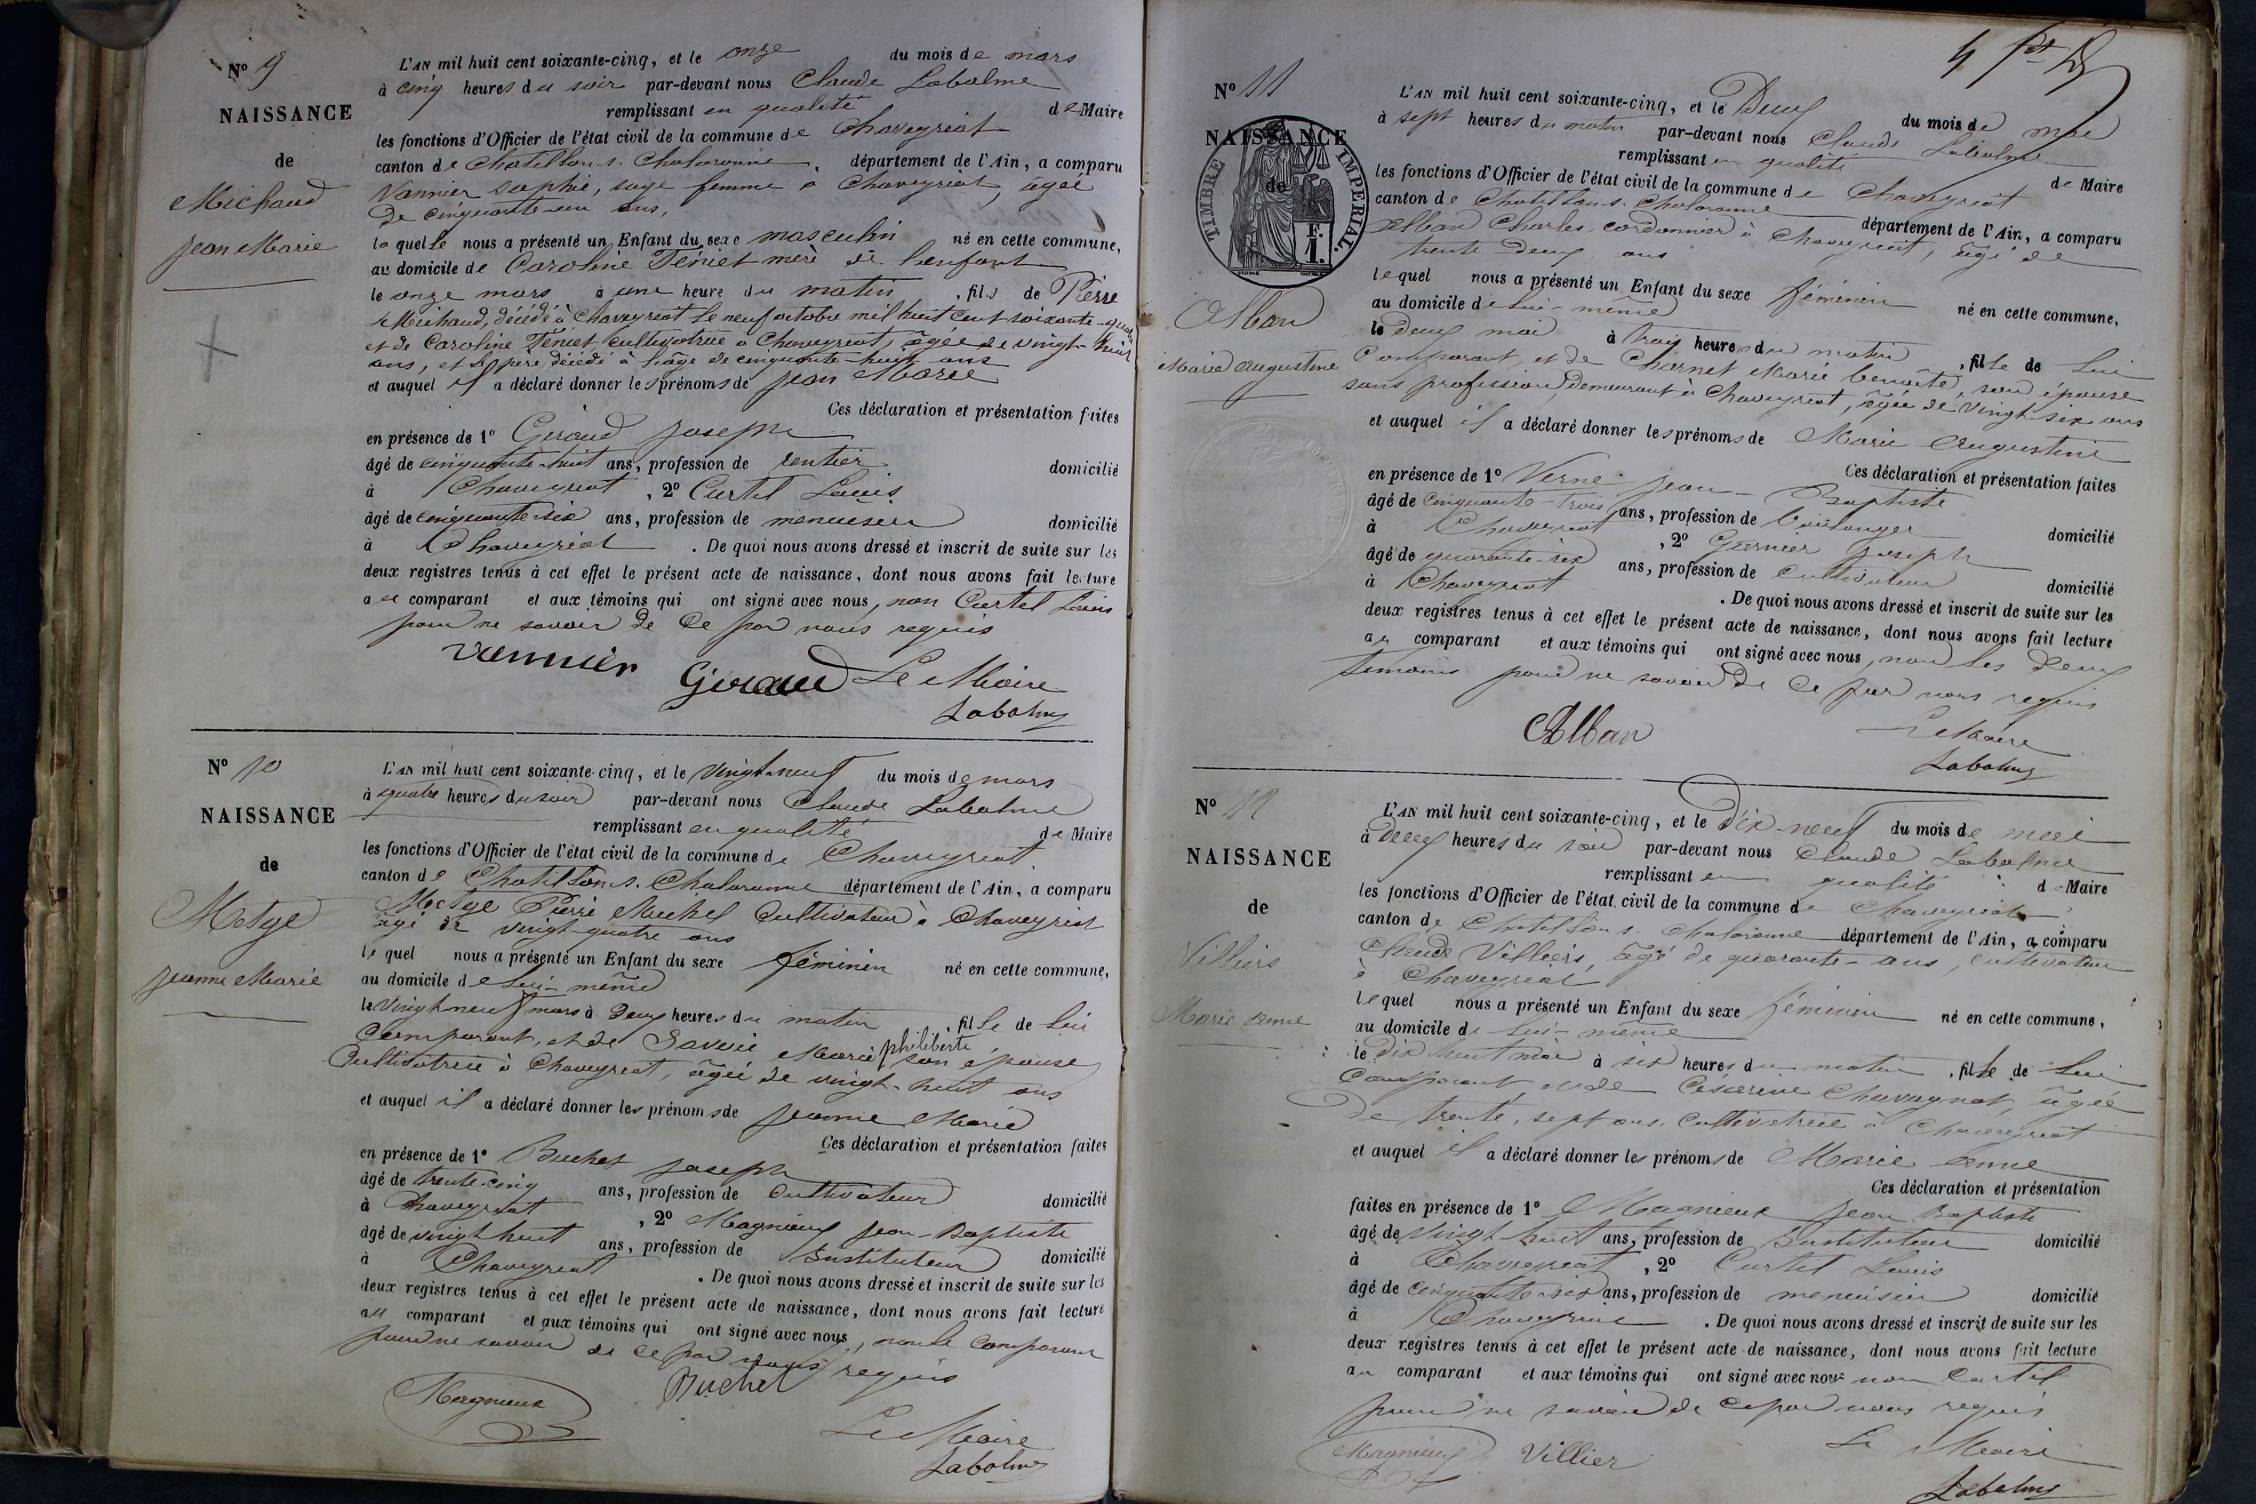 N° 9
NAISSANCE
de
Michaud
Jean Marie
L'AN mil huit cent soixante-cinq, et le onze du mois de mars
à cinq heures du soir par-devant nous Claude Labalme
remplissant en qualité de Maire
les fonctions d'Officier de l'état civil de la commune de Chaveyriat
canton de Chatillon s. Chalaronne, département de l'Ain, a comparu
Vannier Sophie, sage femme à Chaveyriat, âgée
de cinquante-un ans,
laquelle nous a présenté un Enfant du sexe masculin né en cette commune,
au domicile de Caroline Féniet mère de l'enfant
le onze mars à une heure du matin, fils de Pierre
Michaud, décédé à Chaveyriat le neuf octobre mil huit cent soixante-quatre
et de Caroline Féniet cultivatrice à Chaveyriat, âgée de vingt-huit
ans, et le père décédé à l'âge de cinquante-huit ans
et auquel il a déclaré donner les prénoms de Jean Marie
Ces déclaration et présentation faites
en présence de 1° Giraud Joseph
âgé de cinquante-huit ans, profession de rentier domicilié
à Chaveyriat, 2° Curtil Louis
âgé de cinquante-six ans, profession de menuisier domicilié
à Chaveyriat. De quoi nous avons dressé et inscrit de suite sur les
deux registres tenus à cet effet le présent acte de naissance, dont nous avons fait lecture
au comparant et aux témoins qui ont signé avec nous, non Curtil Louis
pour ne savoir de ce par nous requis
Vannier Giraud Le Maire
Labalme
N° 10
NAISSANCE
de
Metge
Jeanne Marie
L'AN mil huit cent soixante-cinq, et le vingt-neuf du mois de mars
à quatre heures du soir par-devant nous Claude Labalme
remplissant en qualité de Maire
les fonctions d'Officier de l'état civil de la commune de Chaveyriat
canton de Chatillon s. Chalaronne département de l'Ain, a comparu
Metge Pierre Michel cultivateur à Chaveyriat
âgé de vingt-quatre ans
lequel nous a présenté un Enfant du sexe féminin né en cette commune,
au domicile de lui-même
le vingt neuf mars à deux heures du matin, fille de lui
comparant, et de Savoie Marie philiberte son épouse
cultivatrice à Chaveyriat, âgée de vingt-huit ans
et auquel il a déclaré donner les prénoms de Jeanne Marie
Ces déclaration et présentation faites
en présence de 1° Buchet Joseph
âgé de trente-cinq ans, profession de cultivateur domicilié
à Chaveyriat, 2° Magnieux Jean-Baptiste
âgé de vingt huit ans, profession de Instituteur domicilié
à Chaveyriat. De quoi nous avons dressé et inscrit de suite sur les
deux registres tenus à cet effet le présent acte de naissance, dont nous avons fait lecture
au comparant et aux témoins qui ont signé avec nous, non le comparant
pour ne savoir de ce par nous requis
Magnieux Buchet
Le Maire
Labalme
N° 11
NAISSANCE
de
TIMBRE IMPERIAL.
1 F.
Alban
Marie Augustine
L'AN mil huit cent soixante-cinq, et le Deux du mois de mai
à sept heures du matin par-devant nous Claude Labalme
remplissant en qualité de Maire
les fonctions d'Officier de l'état civil de la commune de Chaveyriat
canton de Chatillon s. Chalaronne département de l'Ain, a comparu
Alban Charles cordonnier à Chaveyriat, âgé de
trente deux ans
lequel nous a présenté un Enfant du sexe féminin né en cette commune,
au domicile de lui-même
le deux mai à trois heures du matin, fille de lui
comparant, et de Charnet Marie benoîte, son épouse
sans profession, demeurant à Chaveyriat, âgée de vingt-six ans
et auquel il a déclaré donner les prénoms de Marie Augustine
Ces déclaration et présentation faites
en présence de 1° Verne Jean-Baptiste
âgé de cinquante-trois ans, profession de boulanger domicilié
à Chaveyriat, 2° Garnier Joseph
âgé de quarante-six ans, profession de cultivateur domicilié
à Chaveyriat. De quoi nous avons dressé et inscrit de suite sur les
deux registres tenus à cet effet le présent acte de naissance, dont nous avons fait lecture
au comparant et aux témoins qui ont signé avec nous, non les deux
témoins pour ne savoir de ce par nous requis
Alban Le Maire
Labalme
N° 12
NAISSANCE
de
Villiers
Marie Anne
L'AN mil huit cent soixante-cinq, et le Dix-neuf du mois de mai
à deux heures du soir par-devant nous Claude Labalme
remplissant en qualité de Maire
les fonctions d'Officier de l'état civil de la commune de Chaveyriat
canton de Chatillon s. Chalaronne département de l'Ain, a comparu
Claude Villiers, âgé de quarante-ans, cultivateur
à Chaveyriat
lequel nous a présenté un Enfant du sexe féminin né en cette commune,
au domicile de lui-même
le dix huit mai à six heures du matin, fille de lui
comparant, et de Césarine Chavagnat, âgée
de trente-sept ans cultivatrice à Chaveyriat
et auquel il a déclaré donner les prénoms de Marie Anne
Ces déclaration et présentation
faites en présence de 1° Magnieux Jean Baptiste
âgé de vingt huit ans, profession de Instituteur domicilié
à Chaveyriat, 2° Curtil Louis
âgé de cinquante-six ans, profession de menuisier domicilié
à Chaveyriat. De quoi nous avons dressé et inscrit de suite sur les
deux registres tenus à cet effet le présent acte de naissance, dont nous avons fait lecture
au comparant et aux témoins qui ont signé avec nous non Curtil
pour ne savoir de ce par nous requis
Magnieux Villier Le Maire
Labalme